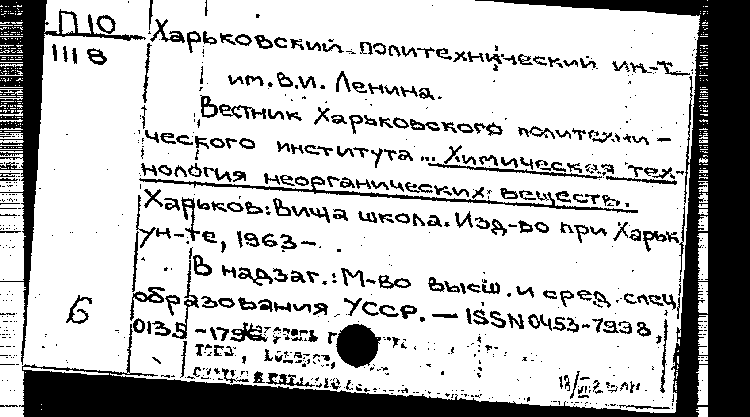 П10
111 8
Харьковский политехнический ин-т
им. В.И. Ленина.
Вестник Харьковского политехни-
ческого института... Химическая тех-
нология неорганических веществ.
Харьков: Вища школа. Изд-во при Харьк
ун-те, 1963-.
В надзаг.: М-во высш. и сред. спец
образования УССР. — ISSN 0453-7998,
0135-179
Б